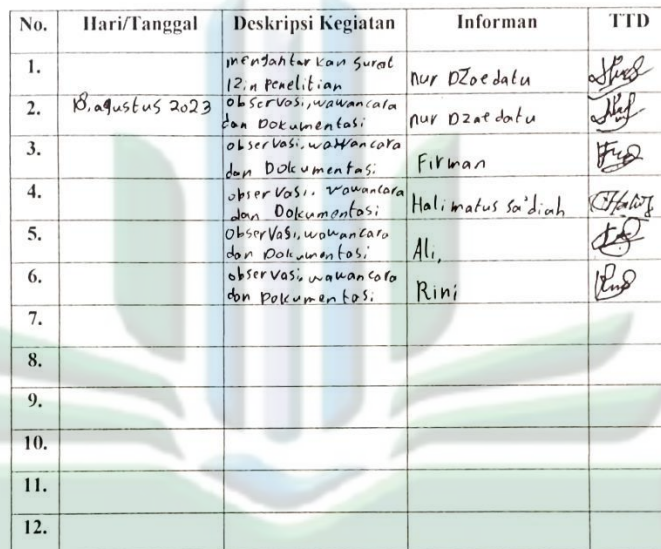 No. Hari/Tanggal Deskripsi Kegiatan Informan TTD
1. mengantarkan surat
izin penelitian nur DZoedatu
2. 18, agustus 2023 observasi, wawancara
dan Dokumentasi nur Dzaedatu
3. observasi, wawancara
dan Dokumentasi Firman
4. observasi, wawancara
dan Dokumentasi Halimatus sa'diah
5. observasi, wawancara
dan Dokumentasi Ali,
6. observasi, wawancara
dan Dokumentasi Rini
7.
8.
9.
10.
11.
12.